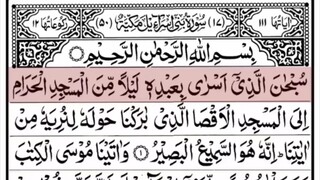 اٰيَاتُهَا ١١١ (١٧) سُوْرَةُ بَنِيْٓ اِسْرَآءِيْلَ مَكِّيَّةٌ (٥٠) رُكُوْعَاتُهَا ١٢
بِسْمِ اللّٰهِ الرَّحْمٰنِ الرَّحِيْمِ
سُبْحٰنَ الَّذِيْٓ اَسْرٰى بِعَبْدِهٖ لَيْلًا مِّنَ الْمَسْجِدِ الْحَرَامِ
اِلَى الْمَسْجِدِ الْاَقْصَا الَّذِيْ بٰرَكْنَا حَوْلَهٗ لِنُرِيَهٗ مِنْ
اٰيٰتِنَا ؕ اِنَّهٗ هُوَ السَّمِيْعُ الْبَصِيْرُ ۝١ وَاٰتَيْنَا مُوْسَى الْكِتٰبَ